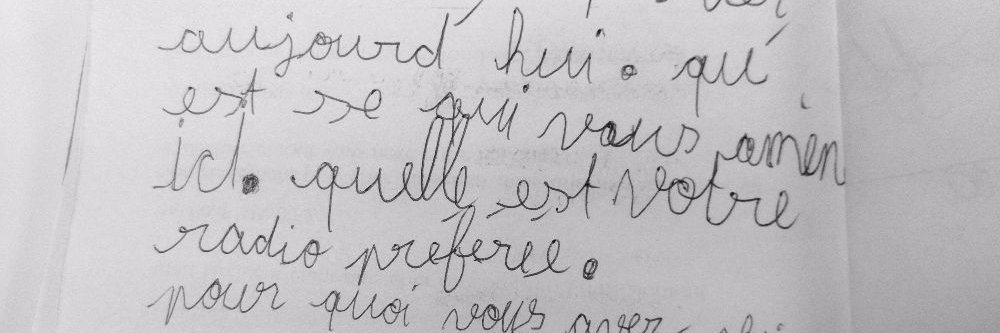 aujourd hui. qu'
est se qui vous amèn
ici. quelle est votre
radio préférée.
pour quoi vous avez